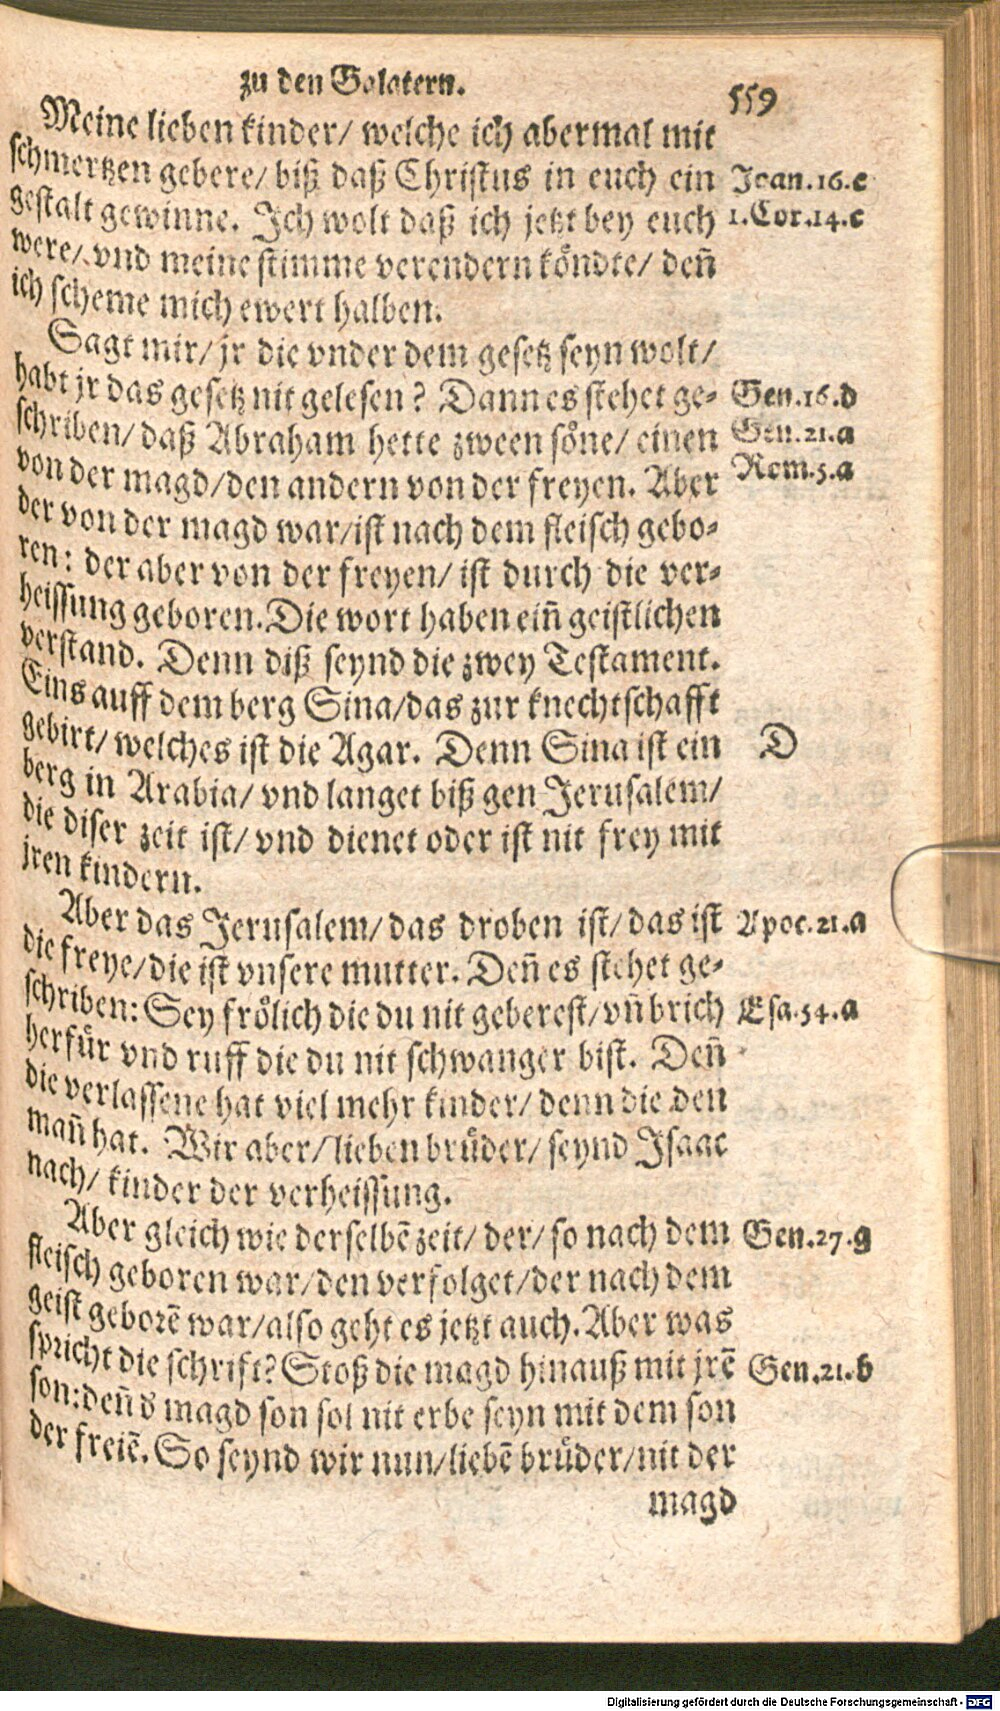 zu den Galatern.
559
Meine lieben kinder/ welche ich abermal mit
schmertzen gebere/ biß daß Christus in euch ein
Joan.16.c
gestalt gewinne. Ich wolt daß ich jetzt bey euch
1.Cor.14.c
were/ vnd meine stimme verendern köndte/ deñ
ich scheme mich ewert halben.
Sagt mir/ jr die vnder dem gesetz seyn wolt/
habt jr das gesetz nit gelesen? Dann es stehet ge-
Gen.16.d
schriben/ daß Abraham hette zween söne/ einen
Gen.21.a
von der magd/den andern von der freyen. Aber
Rom.5.a
der von der magd war/ist nach dem fleisch gebo-
ren: der aber von der freyen/ ist durch die ver-
heissung geboren. Die wort haben eiñ geistlichen
verstand. Denn diß seynd die zwey Testament.
Eins auff dem berg Sina/das zur knechtschafft
gebirt/ welches ist die Agar. Denn Sina ist ein
D
berg in Arabia/ vnd langet biß gen Jerusalem/
die diser zeit ist/ vnd dienet oder ist nit frey mit
jren kindern.
Aber das Jerusalem/ das droben ist/ das ist
Apoc.21.a
die freye/die ist vnsere mutter. Deñ es stehet ge-
schriben: Sey frölich die du nit geberest/vñ brich
Esa.54.a
herfür vnd ruff die du nit schwanger bist. Deñ
die verlassene hat viel mehr kinder/ denn die den
mañ hat. Wir aber/lieben brüder/ seynd Isaac
nach/ kinder der verheissung.
Aber gleich wie derselbē zeit/ der/ so nach dem
Gen.27.g
fleisch geboren war/den verfolget/der nach dem
geist geborē war/also geht es jetzt auch. Aber was
spricht die schrift? Stoß die magd hinauß mit jrē
Gen.21.b
son:deñ d magd son sol nit erbe seyn mit dem son
der freiē. So seynd wir nun/liebē brüder/nit der
magd
Digitalisierung gefördert durch die Deutsche Forschungsgemeinschaft - DFG